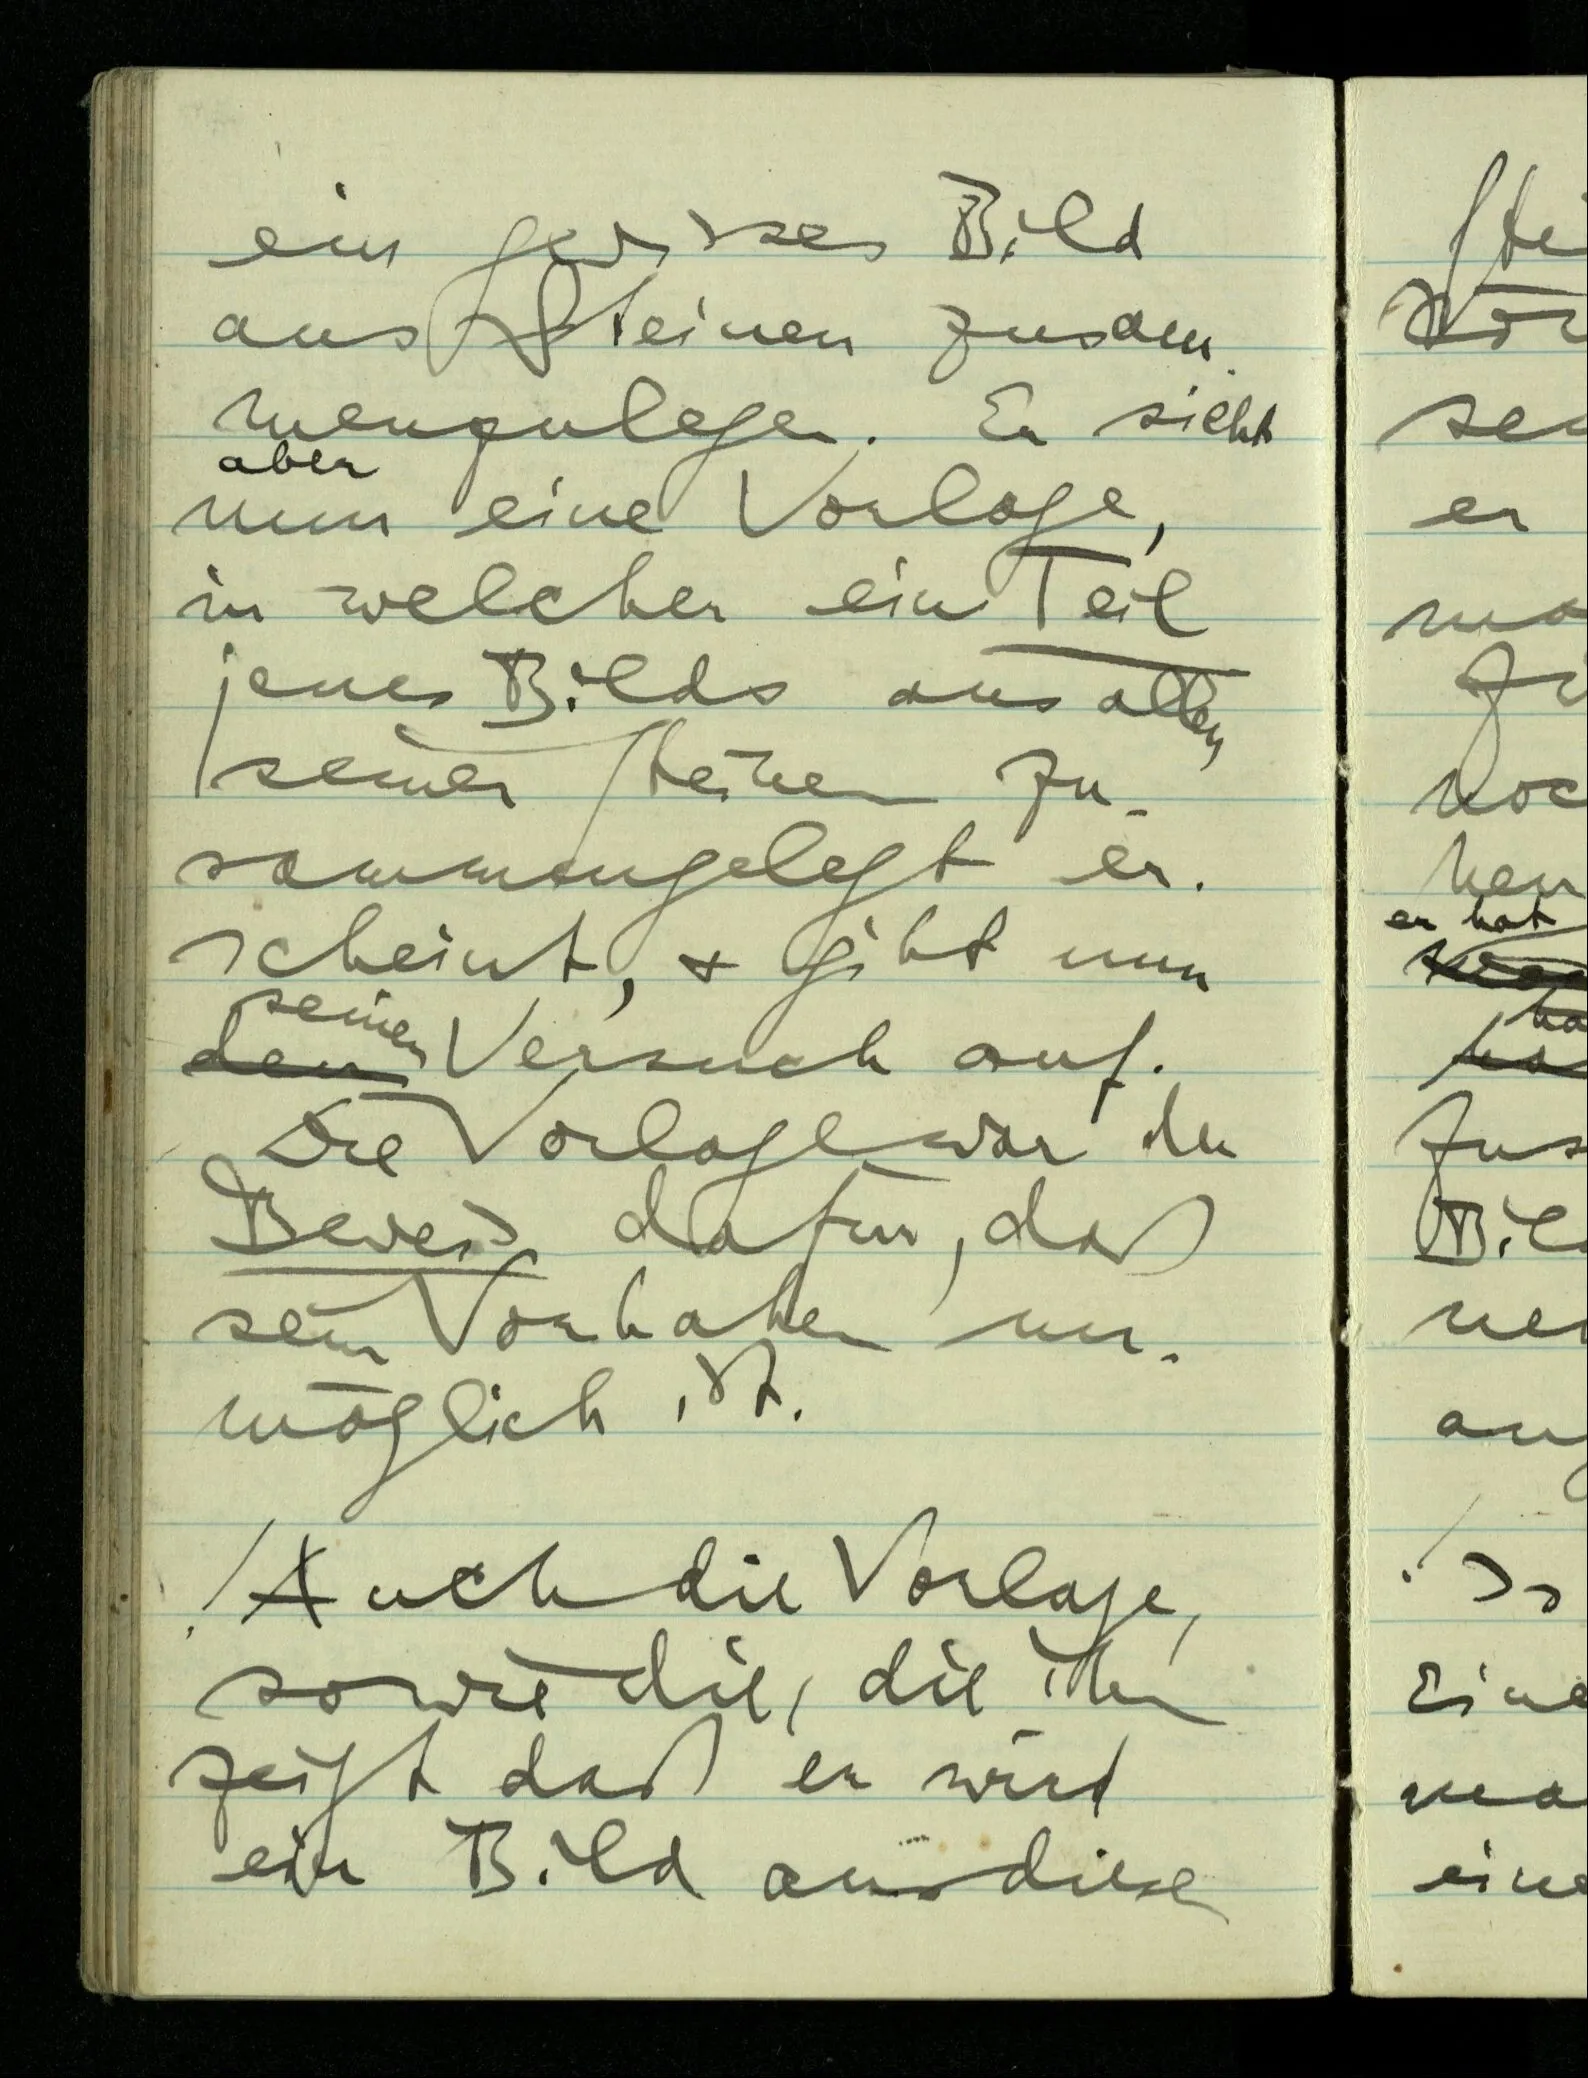 ein gewisses Bild
aus Steinen zusam-
menzulegen. Er sieht
aber
nun eine Vorlage,
in welcher ein Teil
jenes Bilds aus allen
seinen Steinen zu-
sammengelegt er-
scheint, + gibt nun
seinen
den Versuch auf.
Die Vorlage war der
Beweis dafür, daß
sein Vorhaben un-
möglich ist.
Auch die Vorlage,
sowie die, die ihm
zeigt daß er wird
ein Bild aus diesen
er hat
er